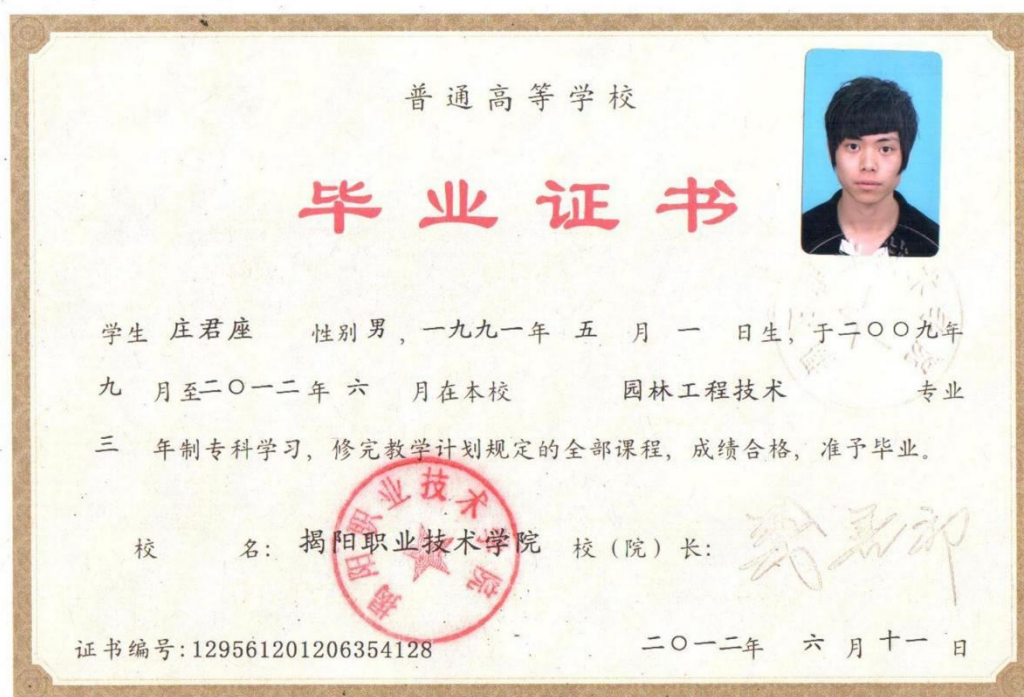 普通高等学校
毕业证书
学生 庄君座 性别 男，一九九一年 五 月 一 日生，于二〇〇九年
九 月至二〇一二年 六 月在本校 园林工程技术 专业
三 年制专科学习，修完教学计划规定的全部课程，成绩合格，准予毕业。
校 名：揭阳职业技术学院 校（院）长：
揭阳职业技术学院
证书编号:129561201206354128 二〇一二年 六 月 十一 日